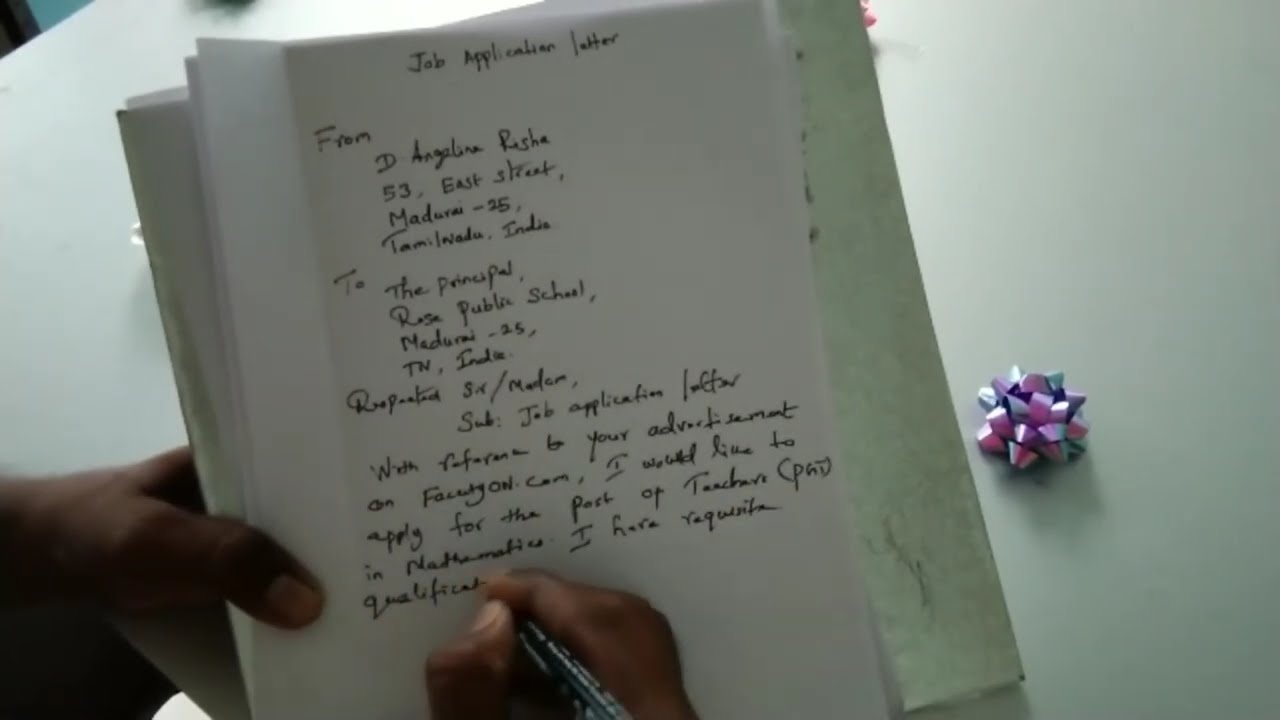 Job Application letter
From
D Angelina Risha
53, East street,
Madurai - 25,
Tamilnadu, India
To The principal,
Rose Public School,
Madurai - 25,
TN, India.
Respected Sir/Madam,
Sub: Job application letter
With reference to your advertisement
on FacultyON.com, I would like to
apply for the post of Teachers (PGT)
in Mathematics. I have requisite
qualificat